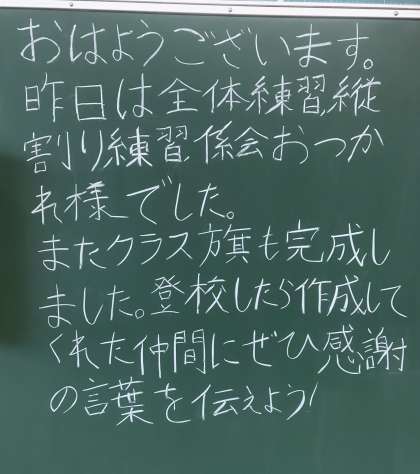 おはようございます。
昨日は全体練習、縦
割り練習、係会おつか
れ様でした。
またクラス旗も完成し
ました。登校したら作成して
くれた仲間にぜひ感謝
の言葉を伝えよう!